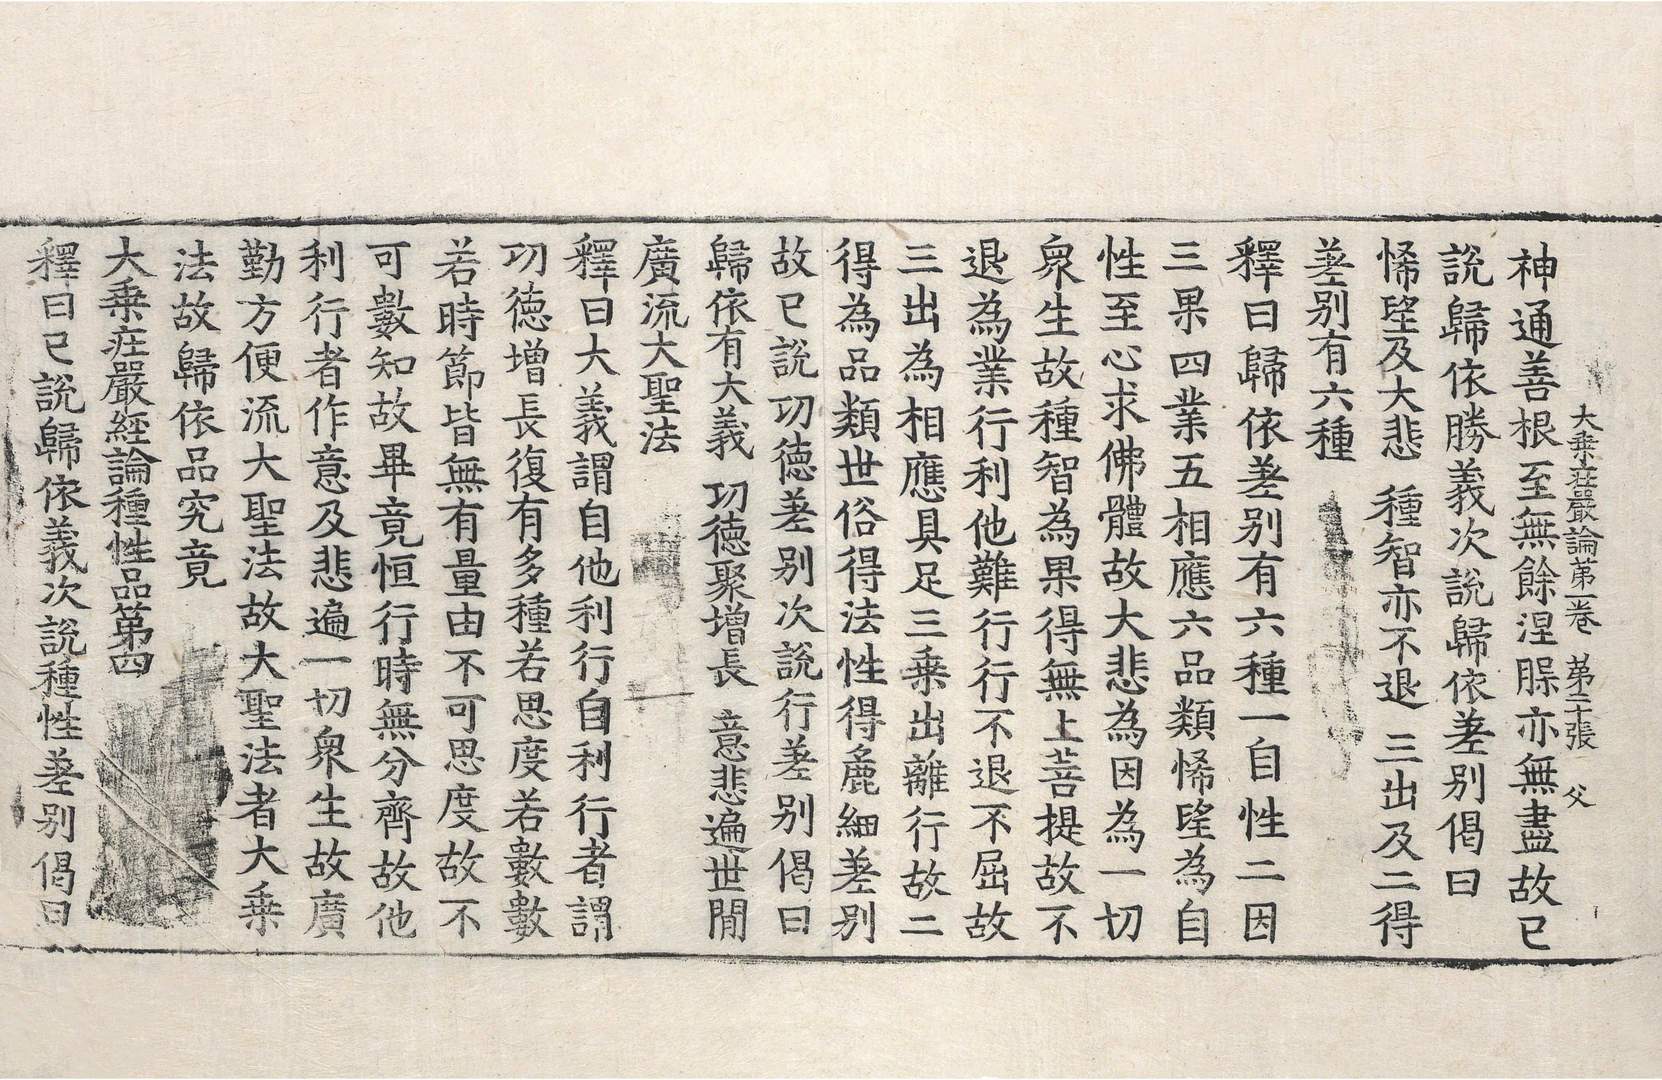 大乗荘嚴論第一卷 第二十張 父
神通善根至無餘涅脵亦無盡故已
說歸依勝義次說歸依差别偈曰
悕望及大悲 種智亦不退 三出及二得
差别有六種
釋曰歸依差别有六種一自性二因
三果四業五相應六品類悕望為自
性至心求佛體故大悲為因為一切
衆生故種智為果得無上菩提故不
退為業行利他難行行不退不屈故
三出為相應具足三乗出離行故二
得為品類世俗得法性得麁細差别
故已說功德差别次說行差别偈曰
歸依有大義 功德聚增長 意悲遍世間
廣流大聖法
釋曰大義謂自他利行自利行者謂
功德增長復有多種若思度若數數
若時節皆無有量由不可思度故不
可數知故畢竟恒行時無分齊故他
利行者作意及悲遍一切衆生故廣
勤方便流大聖法故大聖法者大乗
法故歸依品究竟
大乗荘嚴經論種性品第四
釋曰已說歸依義次說種性差别偈曰